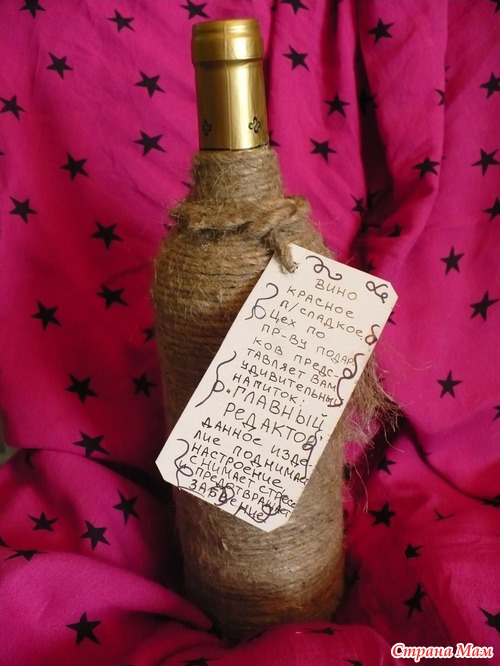 ВИНО
КРАСНОЕ
П/СЛАДКОЕ.
ЦЕХ ПО
ПР-ВУ ПОДАР
КОВ ПРЕДС-
ТАВЛЯЕТ ВАМ
УДИВИТЕЛЬНЫЙ
НАПИТОК:
"ГЛАВНЫЙ
РЕДАКТОР"
ДАННОЕ ИЗДЕ-
ЛИЕ ПОДНИМАЕТ
НАСТРОЕНИЕ,
СНИМАЕТ СТРЕСС
ПРЕДОТВРАЩАЕТ
Страна Мам